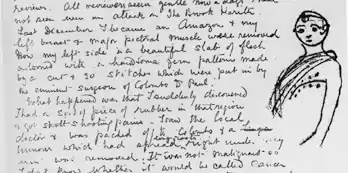 Reviewer. All reviewers seem gentle now a days. I had
not seen even an attack on The Brook Kerith.
Last December I became an Amazon & my
left breast & major pectoral muscle were removed
Now my left side is a beautiful slab of flesh
adorned with a handsome fern pattern made
by a cut & 30 stitches which were put in by
the eminent surgeon of Colombo Dr Paul.
What happened was that I suddenly discovered
I had a sort of piece of rubber in that region
& got shooting pains. I saw the local
doctor & was packed off to Colombo & a
tumour which had spread right under my
arm was removed. It was not malignant so
I don't know whether it would be called Cancer